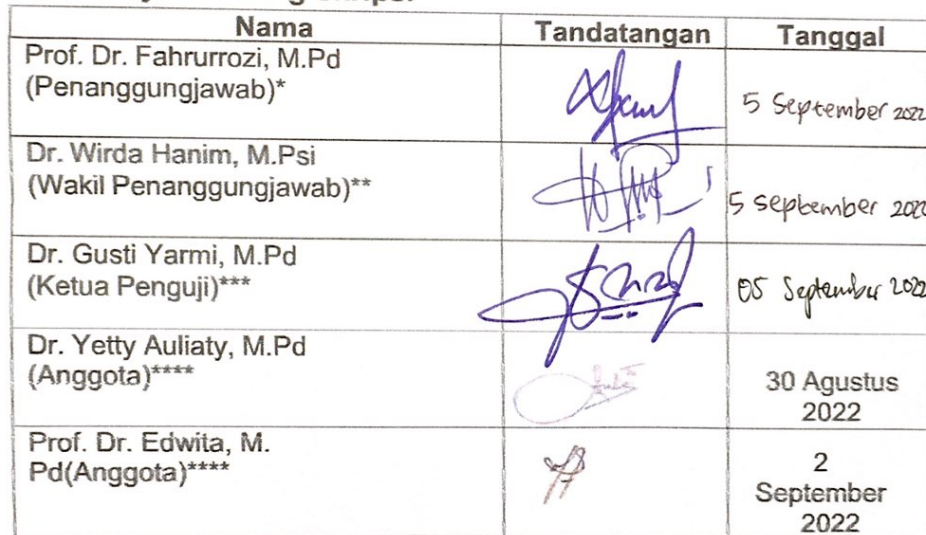 Nama Tandatangan Tanggal
Prof. Dr. Fahrurrozi, M.Pd
(Penanggungjawab)*
5 September 2022
Dr. Wirda Hanim, M.Psi
(Wakil Penanggungjawab)**
5 september 2022
Dr. Gusti Yarmi, M.Pd
(Ketua Penguji)***
05 September 2022
Dr. Yetty Auliaty, M.Pd
(Anggota)****
30 Agustus
2022
Prof. Dr. Edwita, M.
Pd(Anggota)****
2
September
2022